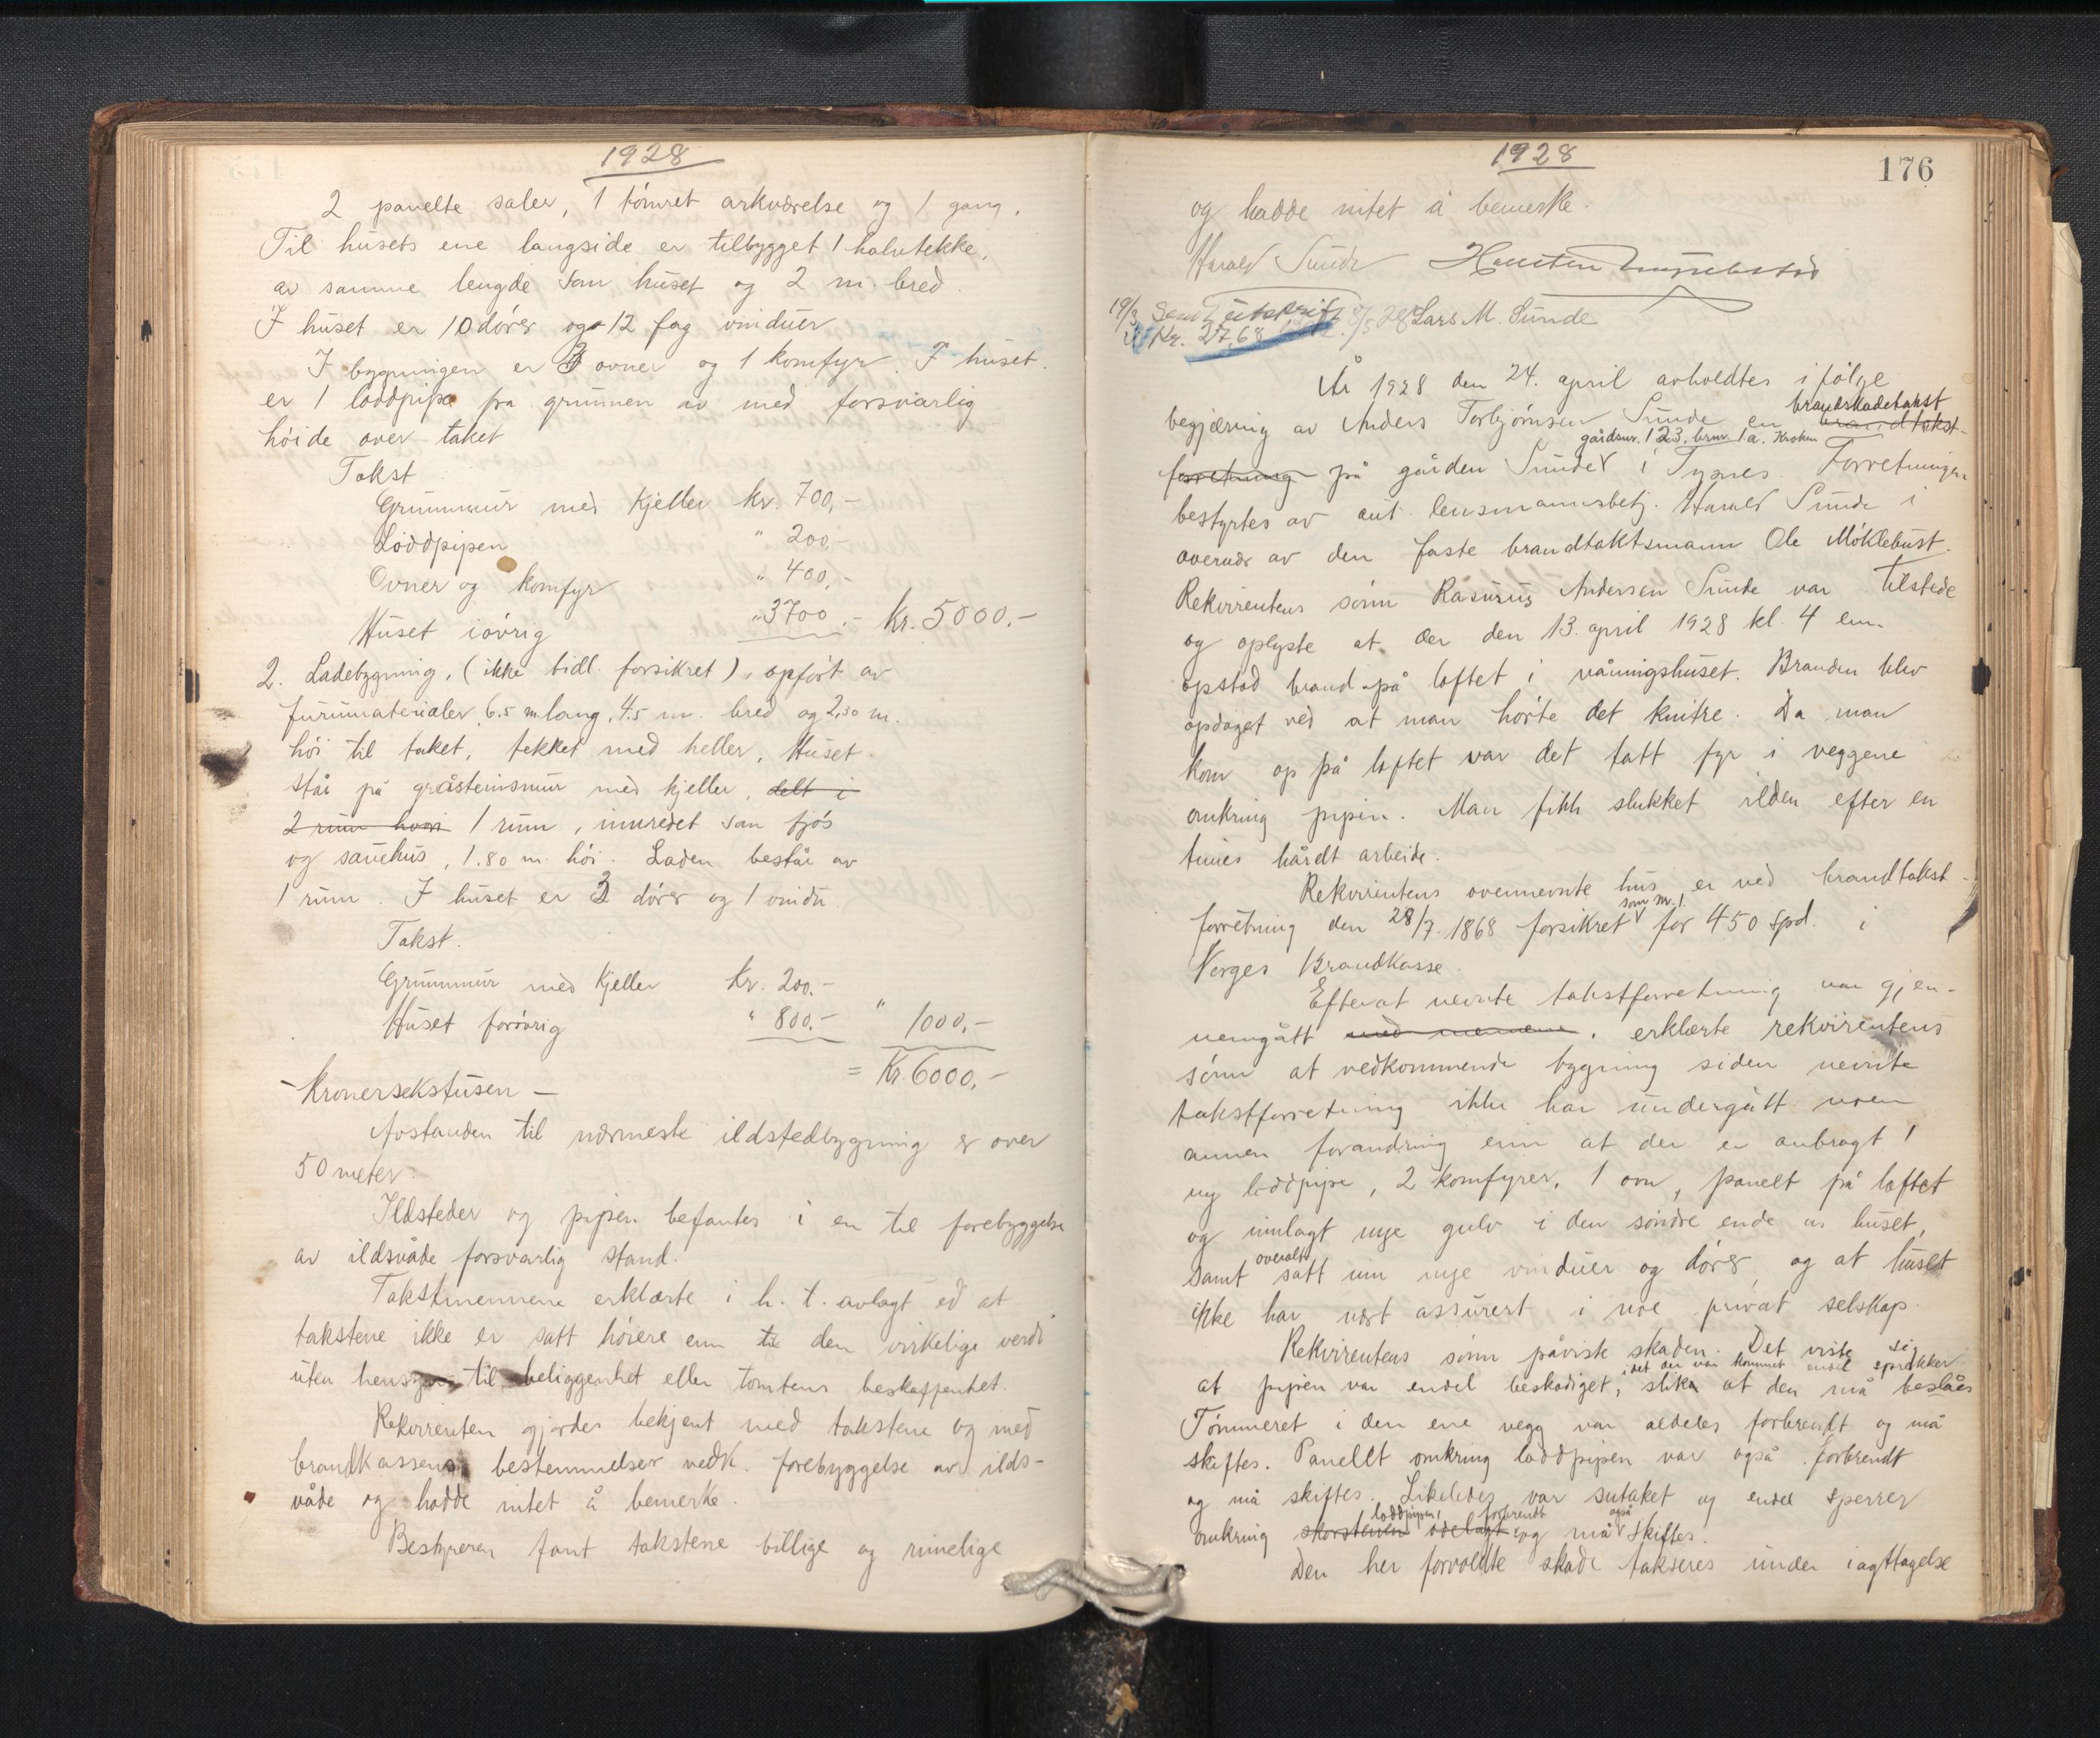 1928
2 panelte saler, 1 tömret arkværelse og 1 gang.
Til husets ene langside er tilbygget 1 halvtekke,
av samme lengde som huset og 2 m. bred.
I huset er 10 dörer og 12 fag vinduer
I bygningen er 3 ovner og 1 komfyr. I huset
er 1 loddpipe fra grunnen av med forsvarlig
höide over taket
Takst
Grunnmur med kjeller kr. 700,-
Loddpipen " 200,-
Ovner og komfyr " 400,-
Huset iövrig " 3700,- Kr. 5000.-
2. Ladebygning, (ikke tidl. forsikret), opfört av
furumaterialer, 6.5 m lang, 4.5 m. bred og 2,30 m.
höi til taket, tekket med heller. Huset
står på gråsteinsmur med kjeller, delt i
2 rum hvori 1 rum, innredet som fjös
og sauehus, 1.80 m. höi. Laden består av
1 rum. I huset er 3 dörer og 1 vindu.
Takst.
Grunnmur med kjeller kr. 200.-
Huset forövrig " 800.- " 1000,-
= Kr. 6000,-
- Kronersekstusen -
Avstanden til nærmeste ildstedbygning er over
50 meter.
Ildsteder og pipen befantes i en til forebyggelse
av ildsvåde forsvarlig stand.
Takstmennene erklærte i h. t. avlagt ed at
takstene ikke er satt höiere enn til den virkelige verdi
uten hensyn til beliggenhet eller tomtens beskaffenhet.
Rekvirenten gjordes bekjent med takstene og med
brandkassens bestemmelser vedk. forebyggelse av ilds-
våde og hadde intet å bemerke.
Bestyreren fant takstene billige og rimelige
1928
176
og hadde intet å bemerke.
Harald Sunde
19/3 Sendt utskrift 8/5 28 Lars M. Sunde
Kr. 27,68
År 1928 den 24. april avholdtes i fölge
brandskadetakst
begjæring av Anders Torbjörnsen Sunde en brandtakst-
gårdsnr. 123, brnr. 1 a. Kroken
forretning på gården Sunde i Tysnes. Forretningen
bestyrtes av aut. lensmannsbetj. Harald Sunde i
overvær av den faste brandtakstmann Ole Möklebust.
Rekvirentens sönn Rasmus Andersen Sunde var tilstede
og oplyste at der den 13. april 1928 kl. 4 em.
opstod brand på loftet i våningshuset. Branden blev
opdaget ved at man hörte det knitre. Da man
kom op på loftet var det tatt fyr i veggene
omkring pipen. Man fikk slukket ilden efter en
times hårdt arbeide.
Rekvirentens ovennevnte hus er ved brandtakst-
som nr. 1
forretning den 28/7. 1868 forsikret for 450 spd. i
Norges Brandkasse.
Efterat nevnte takstforretning var gjen-
nemgått med mennene, erklærte rekvirentens
sönn at vedkommende bygning siden nevnte
takstforretning ikke har undergått noen
annen forandring enn at der er anbragt 1
ny loddpipe, 2 komfyrer, 1 ovn, panelt på loftet
og innlagt nye gulv i den söndre ende av huset,
overalt
samt satt inn nye vinduer og dörer, og at huset
ikke har vært assurert i noe privat selskap.
Rekvirentens sönn påviste skaden. Det viste sig
idet der var kommet endel sprekker
at pipen var endel beskadiget, slik at den må beslåes
Tömmeret i den ene vegg var aldeles forbrendt og må
skiftes. Panellt omkring loddpipen var også forbrendt
og må skiftes. Likeledes var sutaket og endel sperrer
loddpipen, forbrendt også
omkring skorstenen ödelagt og må skiftes.
Den her forvoldte skade takseres under iagttagelse